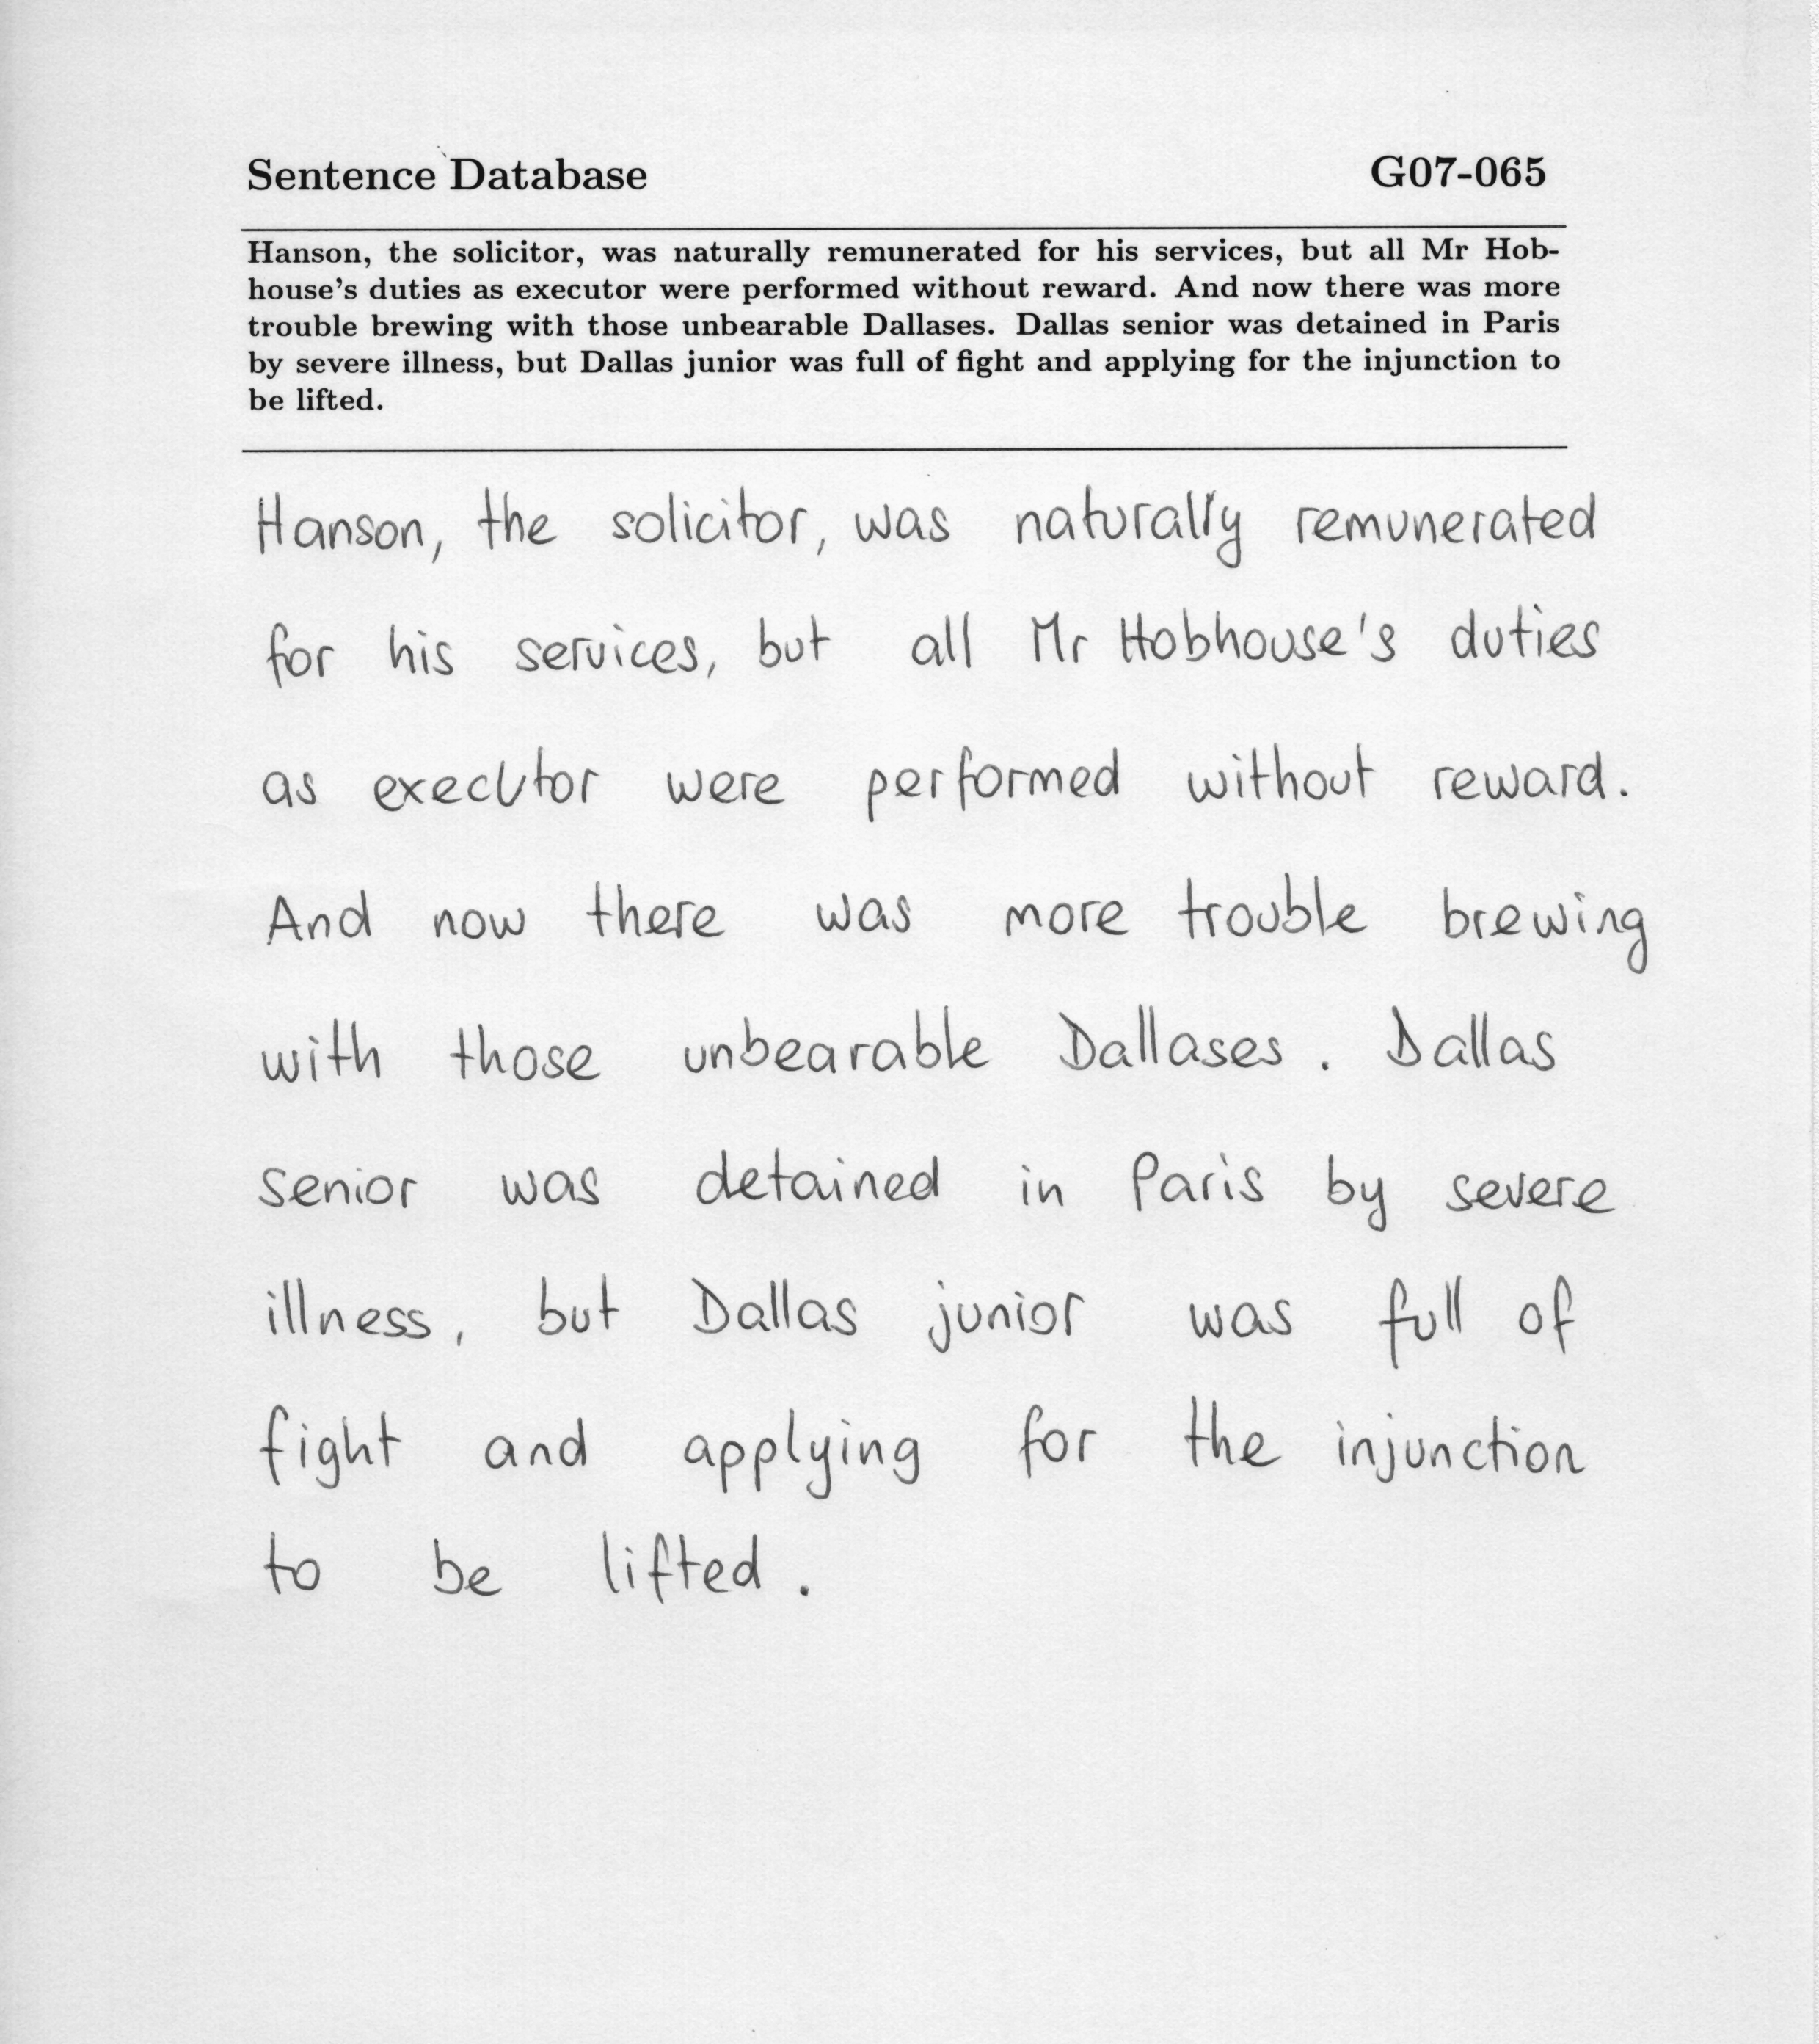 Sentence Database
G07-065
Hanson, the solicitor, was naturally remunerated for his services, but all Mr Hob-
house's duties as executor were performed without reward. And now there was more
trouble brewing with those unbearable Dallases. Dallas senior was detained in Paris
by severe illness, but Dallas junior was full of fight and applying for the injunction to
be lifted.
Hanson, the solicitor, was naturally remunerated
for his services, but all Mr Hobhouse's duties
as executor were performed without reward.
And now there was more trouble brewing
with those unbearable Dallases. Dallas
senior was detained in Paris by severe
illness, but Dallas junior was full of
fight and applying for the injunction
to be lifted.